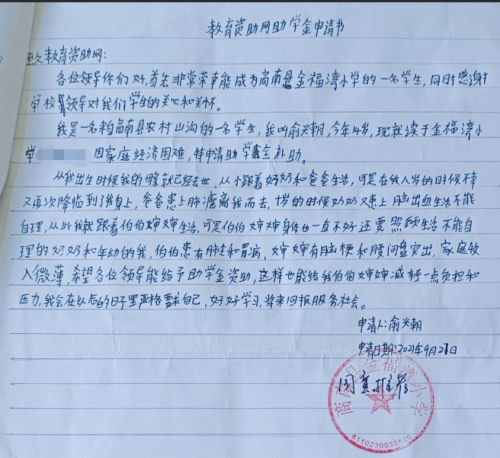 教育资助网助学金申请书
致教育资助网:
各位领导你们好,首先非常荣幸能成为商南县金福湾小学的一名学生,同时感谢
学校领导对我们学生的关心和关怀。
我是一名来自商南县农村山沟的一名学生,我叫俞兴朝,今年14岁,现就读于金福湾小
学 因家庭经济困难,特申请助学金补助。
从我出生时候我的 就已经去世,从小跟着奶奶和爸爸生活,可是在我八岁的时候不幸
又再次降临到了我身上,爸爸患上肺 离我而去, 岁的时候奶奶又患上脑出血生活不能
自理,从此我就跟着伯伯婶婶生活,可是伯伯婶婶身体也一直不好还要照顾生活不能自
理的奶奶和年幼的我,伯伯患有肺 和胃病,婶婶有脑梗和腰间盘突出,家庭收
入微薄,希望各位领导能给予助学金资助,这样也能给我伯伯婶婶减轻一点负担和
压力,我会在以后的日子里严格要求自己,好好学习,将来回报服务社会。
申请人:俞兴朝
申请日期:2021年9月21日
同意推荐
商南县金福湾小学